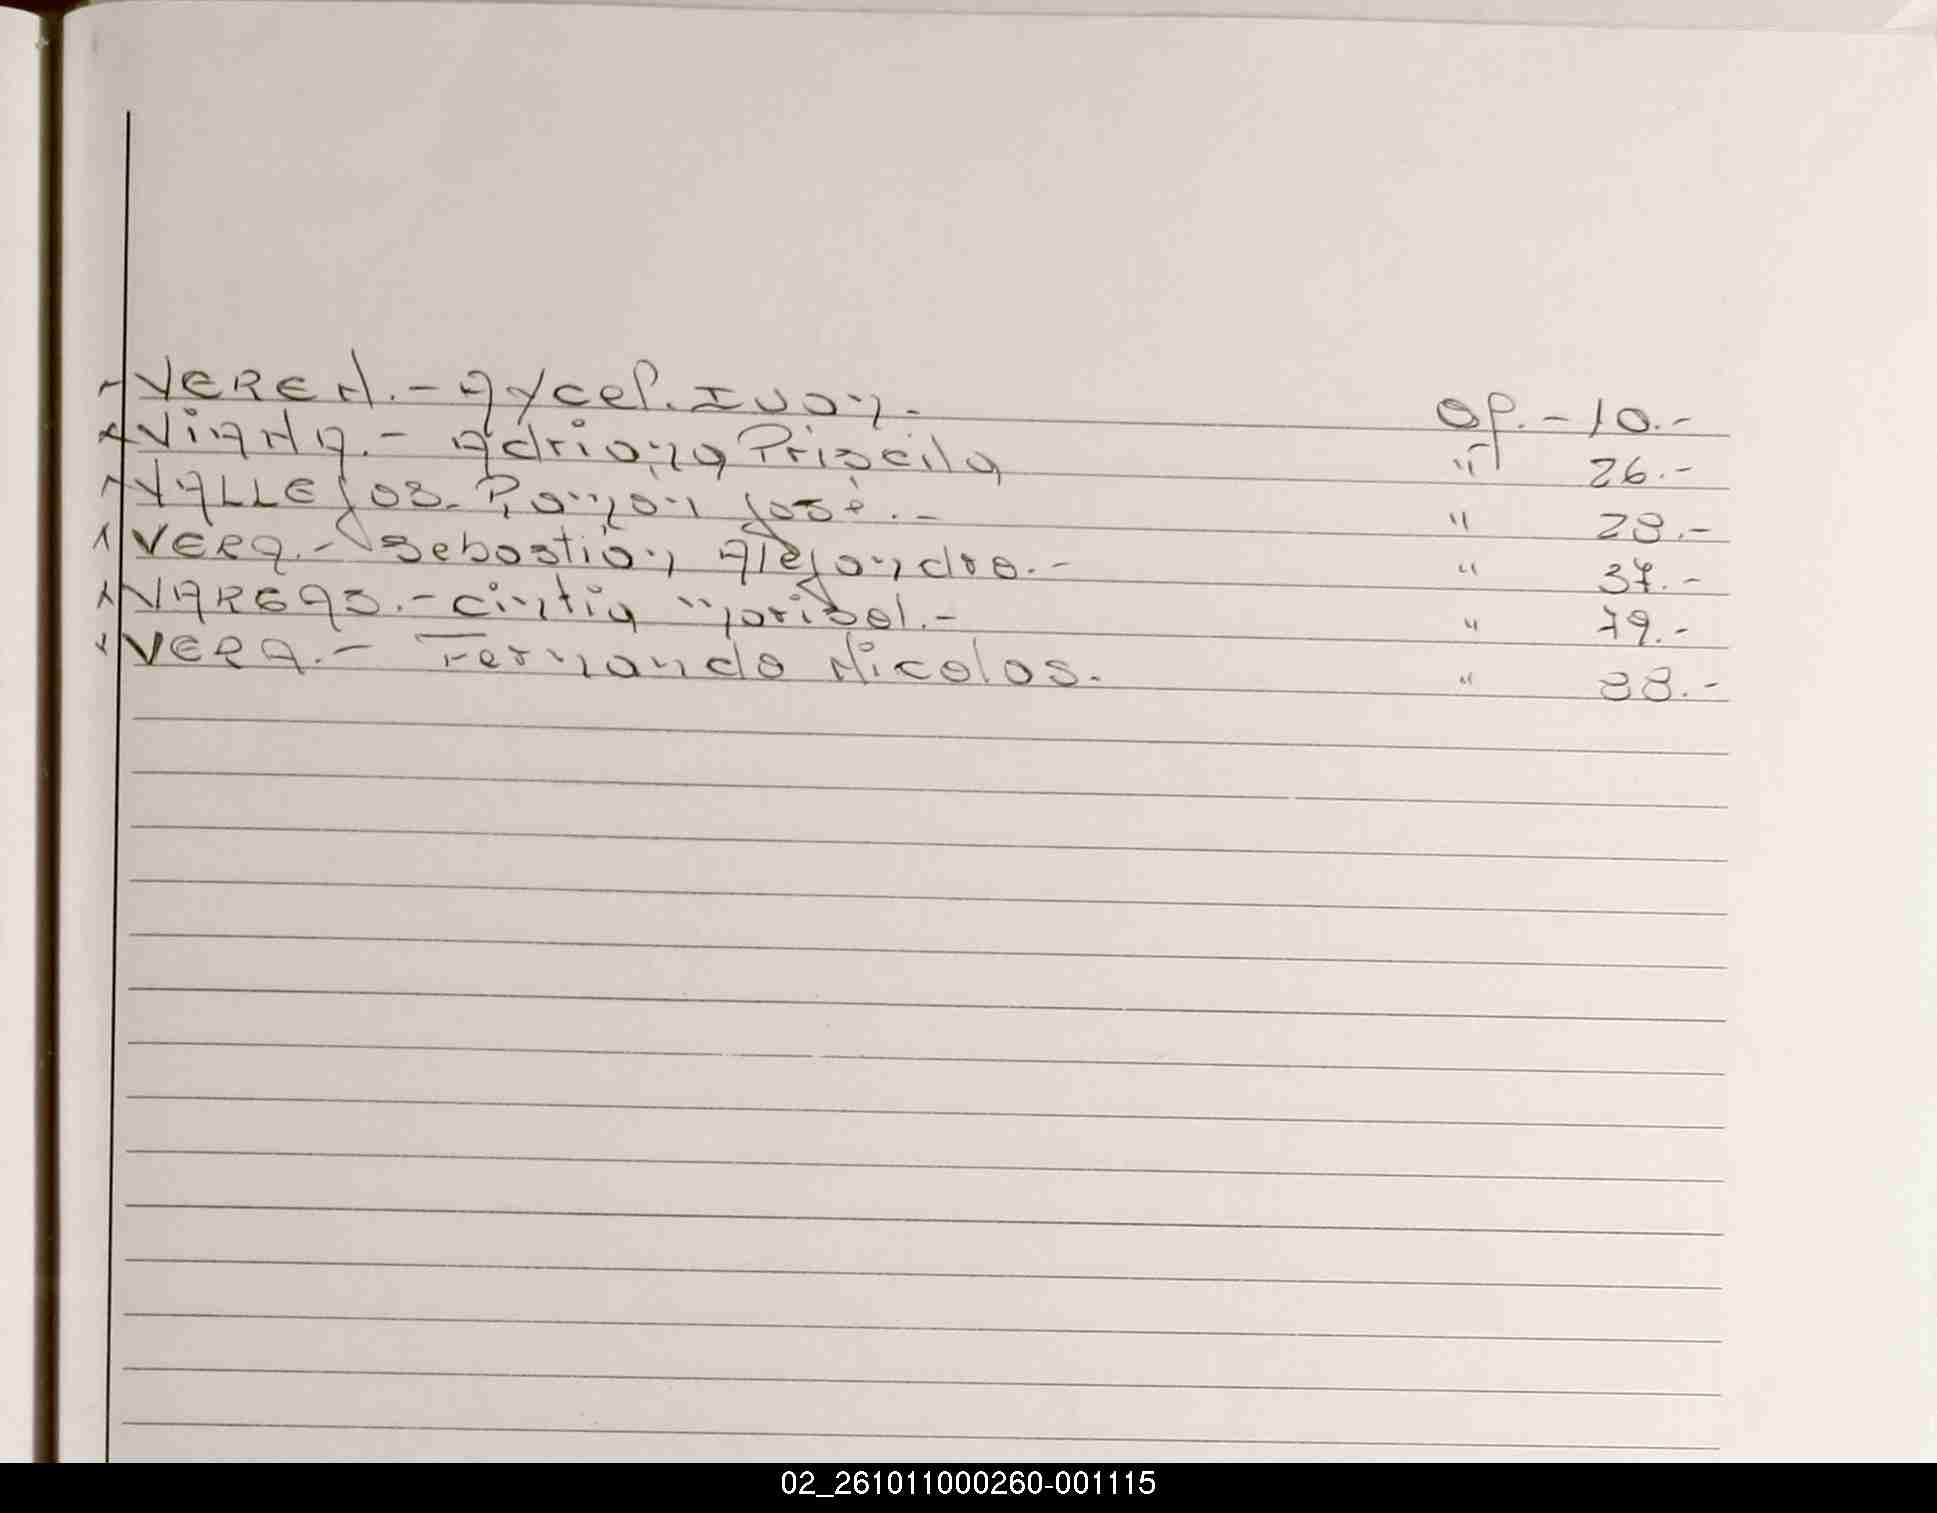 VEREN.- Aycef. Ivon.- Of.- 10.-
VIANA.- Adriana Priscila " 26.-
VALLEJOS. Ramon José.- " 28.-
VERA.- Sebastian Alejandro.- " 37.-
VAREGAS.- Cintia Marisol.- " 79.-
VERA.- Fernando Nicolas. " 88.-
02_261011000260-001115